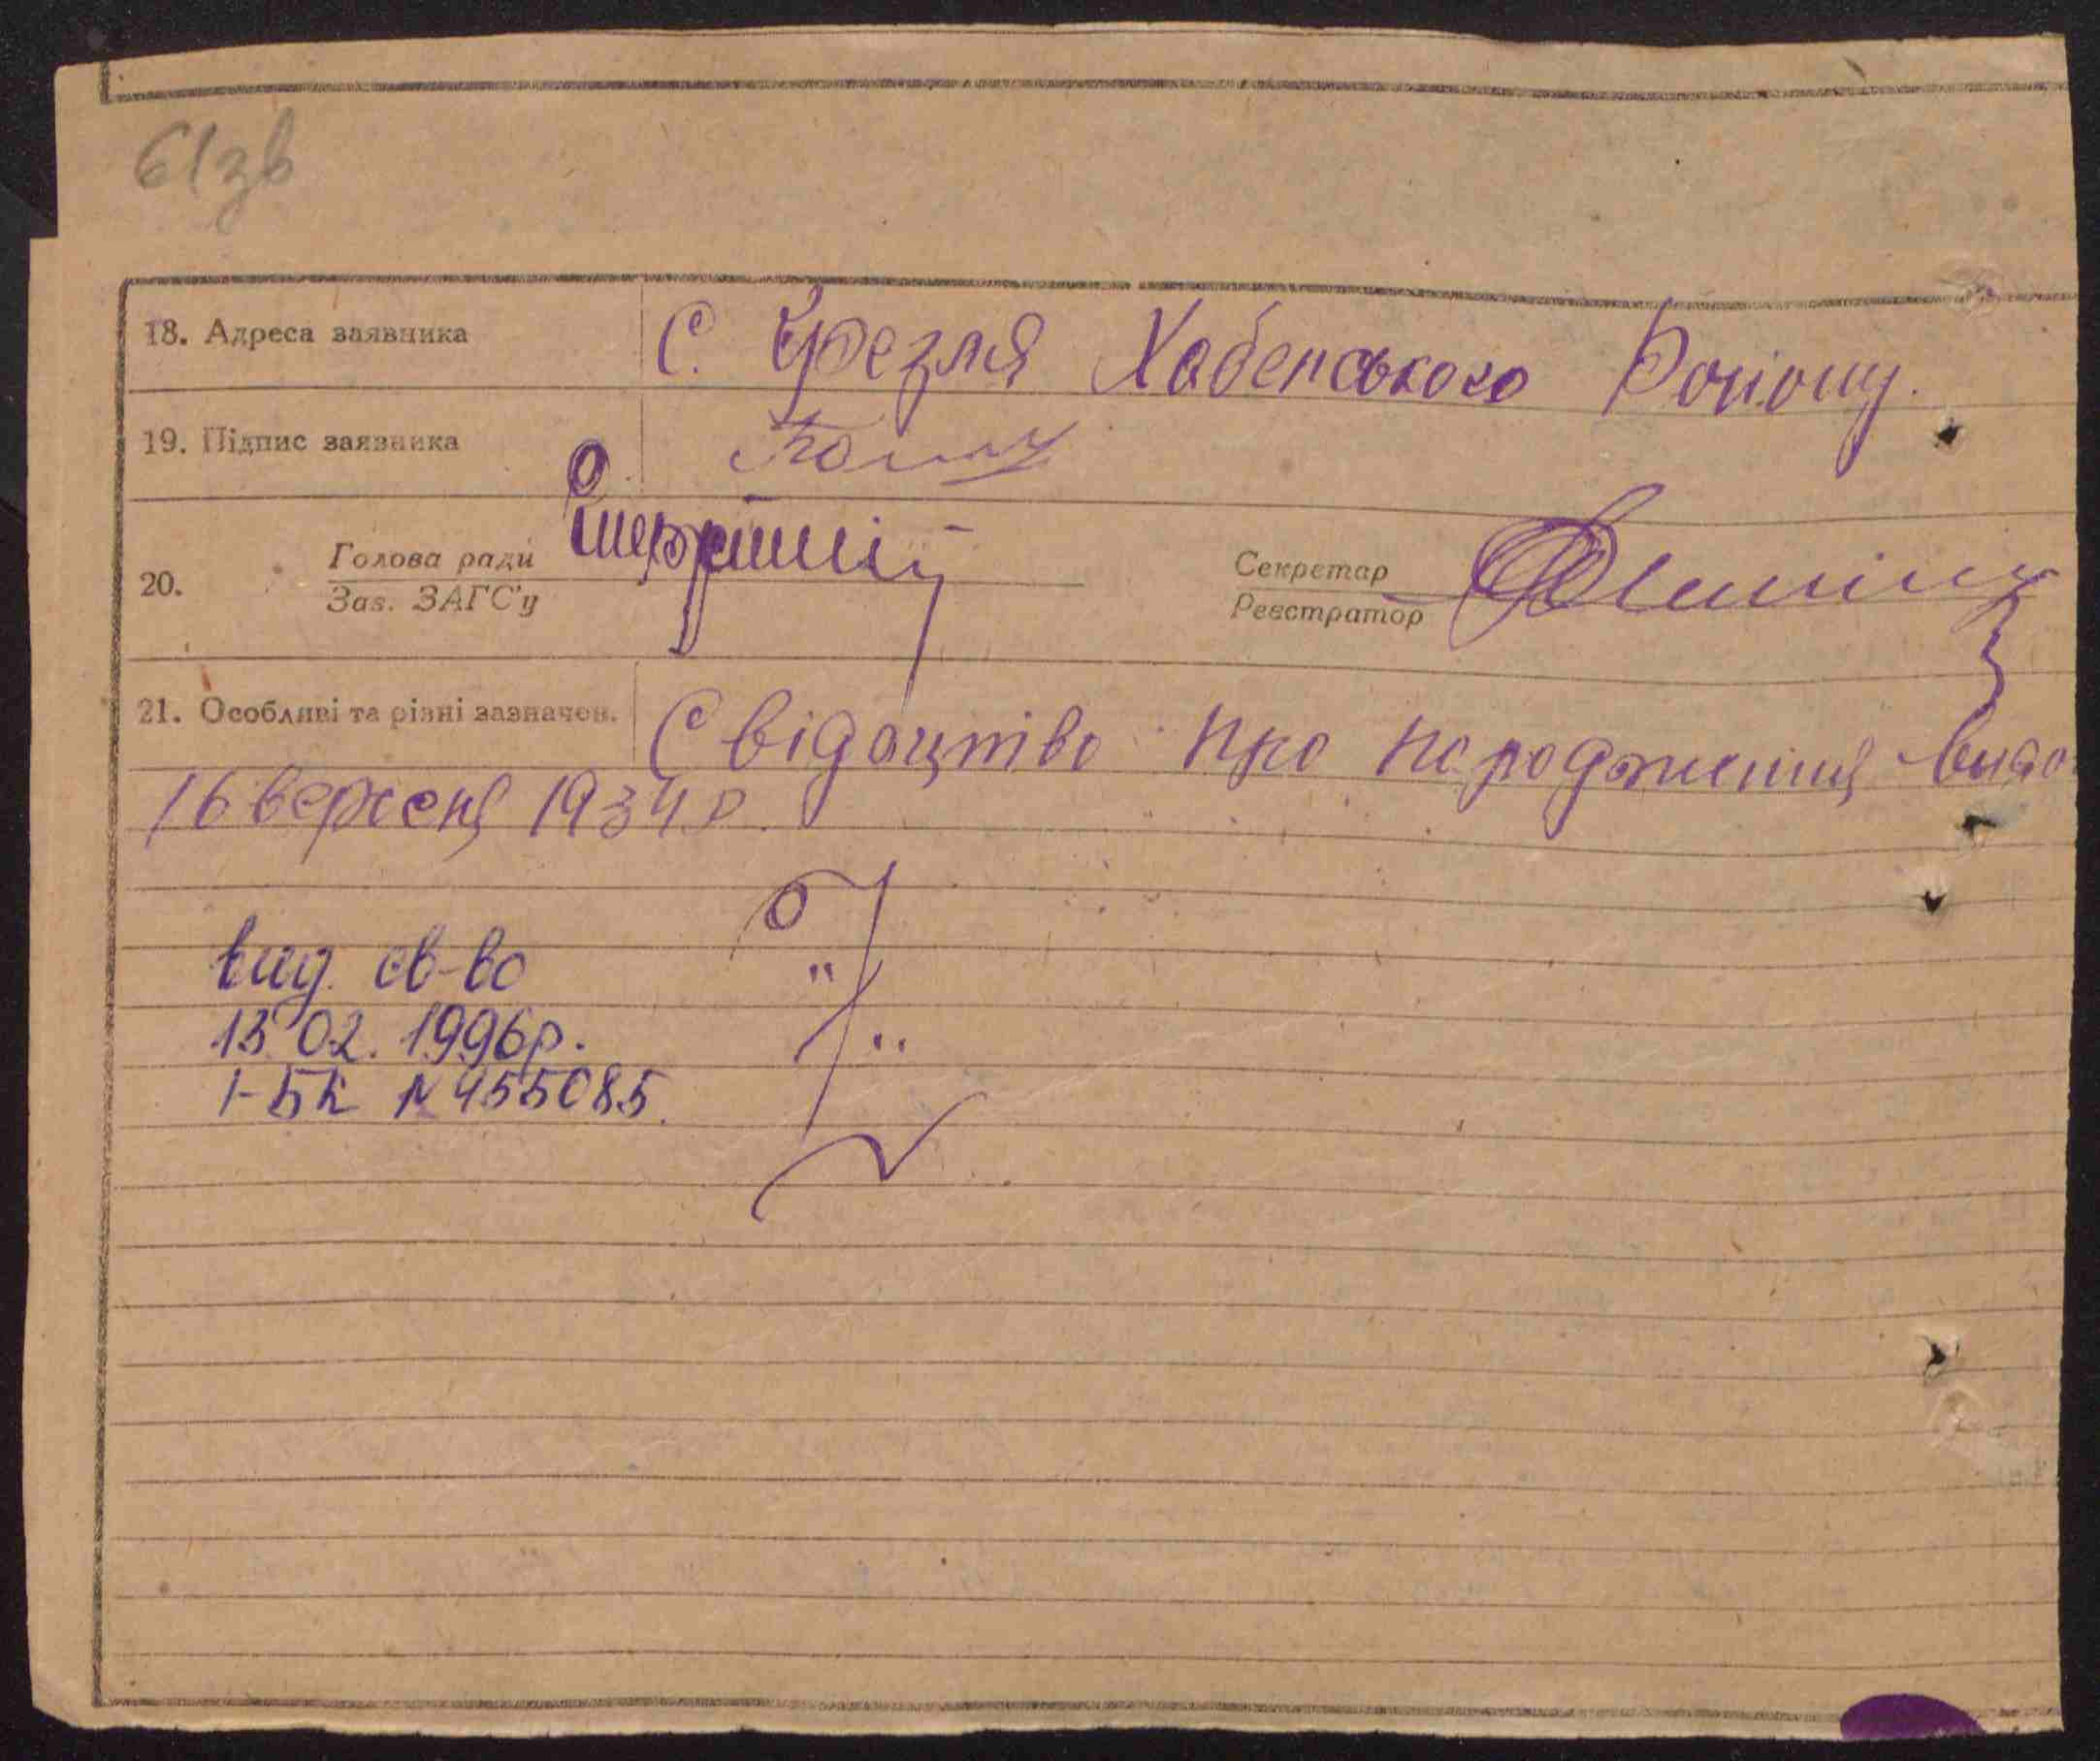 61зв
18. Адреса заявника С. Грезля Хабенського Району.
19. Підпис заявника
20. Голова ради
Зав. ЗАГС'у
Секретар
Реєстратор
21. Особливі та різні зазначен. Свідоцтво про народження видо
16 вересня 1934 р.
вид. св-во
13 02. 1996р.
І-БК N 455085.